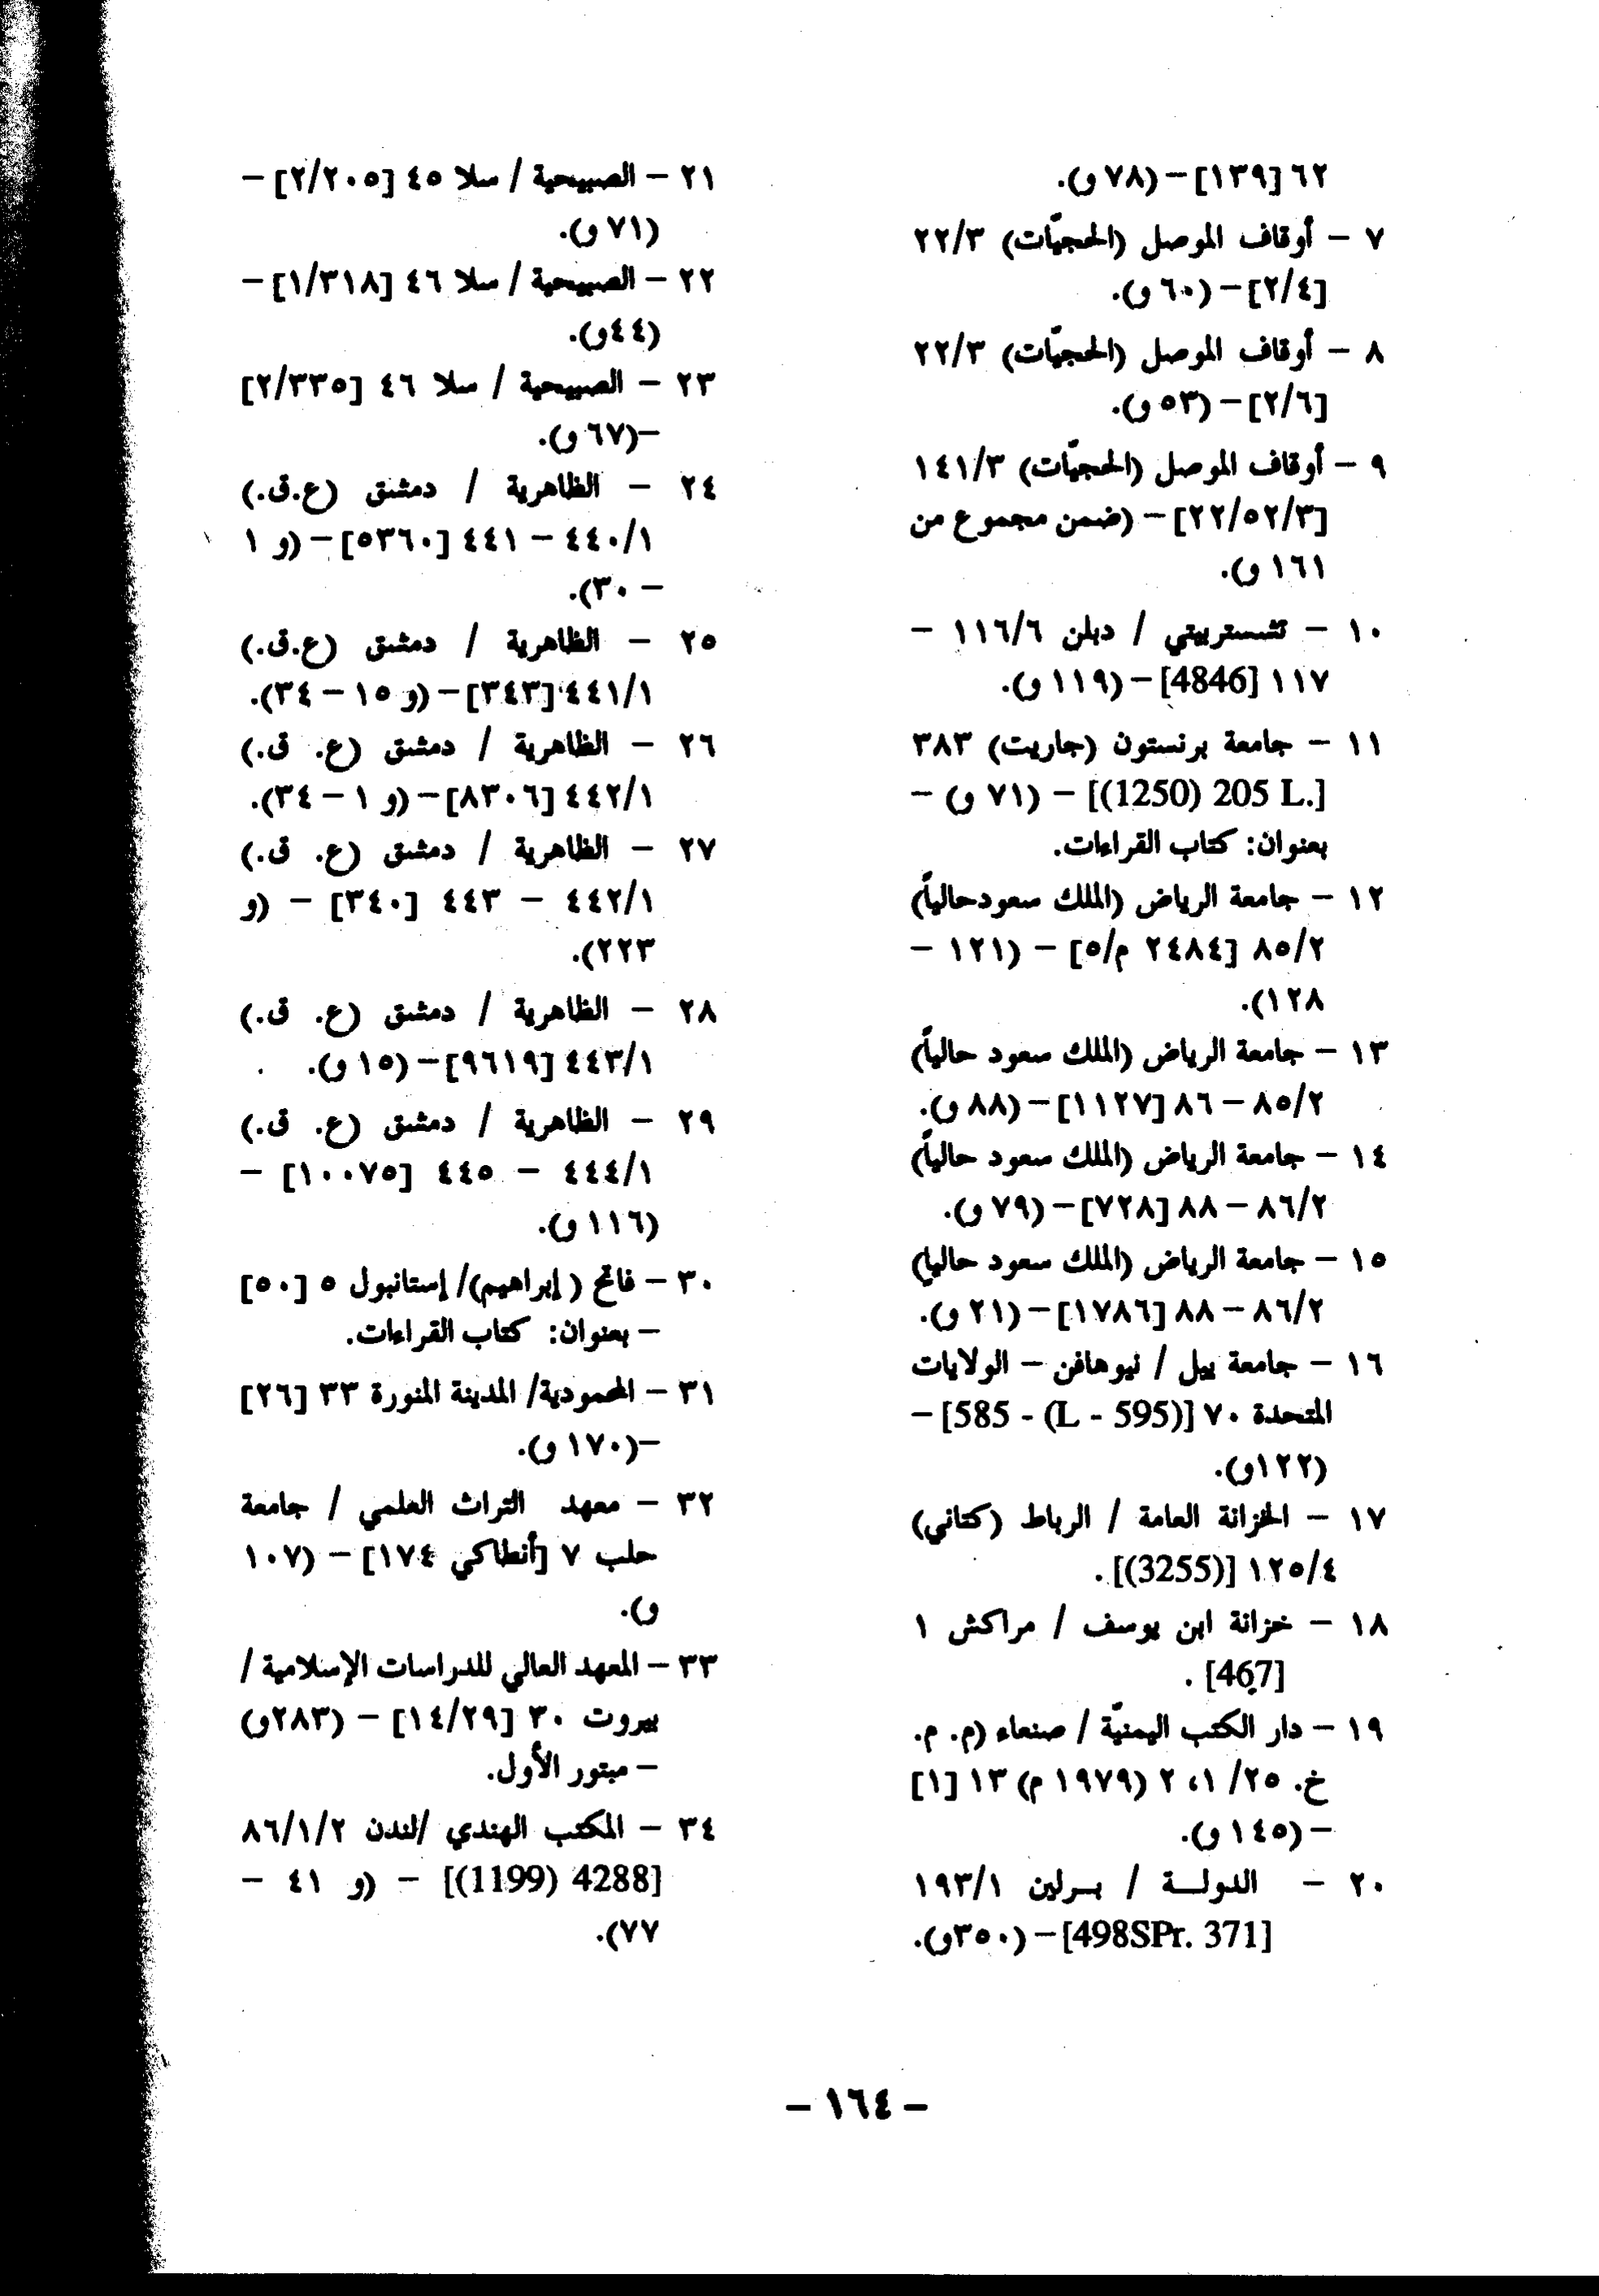 ٦٢ [١٣٩] – (٧٨ و).
٧ – أوقاف الموصل (الحجيّات) ٢٢/٣
[٢/٤] – (٦٠ و).
٨ – أوقاف الموصل (الحجيّات) ٢٢/٣
[٢/٦] – (٥٣ و).
٩ – أوقاف الموصل (الحجيّات) ١٤١/٣
[٢٢/٥٢/٣] – (ضمن مجموع من
١٦١ و).
١٠ – تشستربيتي / دبلن ١١٦/٦ –
١١٧ [4846] – (١١٩ و).
١١ – جامعة برنستون (جاريت) ٣٨٣
[(1250) 205 L.] – (٧١ و) –
بعنوان: كتاب القراءات.
١٢ – جامعة الرياض (الملك سعودحالياً)
٨٥/٢ [٢٤٨٤ م/٥] – (١٢١ –
١٢٨).
١٣ – جامعة الرياض (الملك سعود حالياً)
٨٥/٢ – ٨٦ [١١٢٧] – (٨٨ و).
١٤ – جامعة الرياض (الملك سعود حالياً)
٨٦/٢ – ٨٨ [٧٢٨] – (٧٩ و).
١٥ – جامعة الرياض (الملك سعود حاليا)
٨٦/٢ – ٨٨ [١٧٨٦] – (٢١ و).
١٦ – جامعة ييل / نيوهافن – الولايات
المتحدة ٧٠ [585 - (L - 595)] –
(١٢٢و).
١٧ – الخزانة العامة / الرباط (كتاني)
١٢٥/٤ [(3255)] .
١٨ – خزانة ابن يوسف / مراكش ١
[467] .
١٩ – دار الكتب اليمنيّة / صنعاء (م. م.
خ. ٢٥/ ١، ٢ (١٩٧٩ م) ١٣ [١]
– (١٤٥ و).
٢٠ – الدولـة / بـرلين ١٩٣/١
[498SPr. 371] – (٣٥٠و).
٢١ – الصبيحية / سلا ٤٥ [٢/٢٠٥] –
(٧١ و).
٢٢ – الصبيحية / سلا ٤٦ [١/٣١٨] –
(٤٤و).
٢٣ – الصبيحية / سلا ٤٦ [٢/٣٣٥]
–(٦٧ و).
٢٤ – الظاهرية / دمشق (ع.ق.)
٤٤٠/١ – ٤٤١ [٥٣٦٠] – (و ١
– ٣٠).
٢٥ – الظاهرية / دمشق (ع.ق.)
٤٤١/١ [٣٤٣] – (و ١٥ – ٣٤).
٢٦ – الظاهرية / دمشق (ع. ق.)
٤٤٢/١ [٨٣٠٦] – (و ١ – ٣٤).
٢٧ – الظاهرية / دمشق (ع. ق.)
٤٤٢/١ – ٤٤٣ [٣٤٠] – (و
٢٢٣).
٢٨ – الظاهرية / دمشق (ع. ق.)
٤٤٣/١ [٩٦١٩] – (١٥ و).
٢٩ – الظاهرية / دمشق (ع. ق.)
٤٤٤/١ – ٤٤٥ [١٠٠٧٥] –
(١١٦ و).
٣٠ – فاتح ( إبراهيم)/ إستانبول ٥ [٥٠]
– بعنوان: كتاب القراءات.
٣١ – المحمودية/ المدينة المنورة ٣٣ [٢٦]
–(١٧٠ و).
٣٢ – معهد التراث العلمي / جامعة
حلب ٧ [أنطاكي ١٧٤] – (١٠٧
و).
٣٣ – المعهد العالي للدراسات الإسلامية /
بيروت ٣٠ [١٤/٢٩] – (٢٨٣و)
– مبتور الأول.
٣٤ – المكتب الهندي /لندن ٨٦/١/٢
[(1199) 4288] – (و ٤١ –
٧٧).
– ١٦٤ –